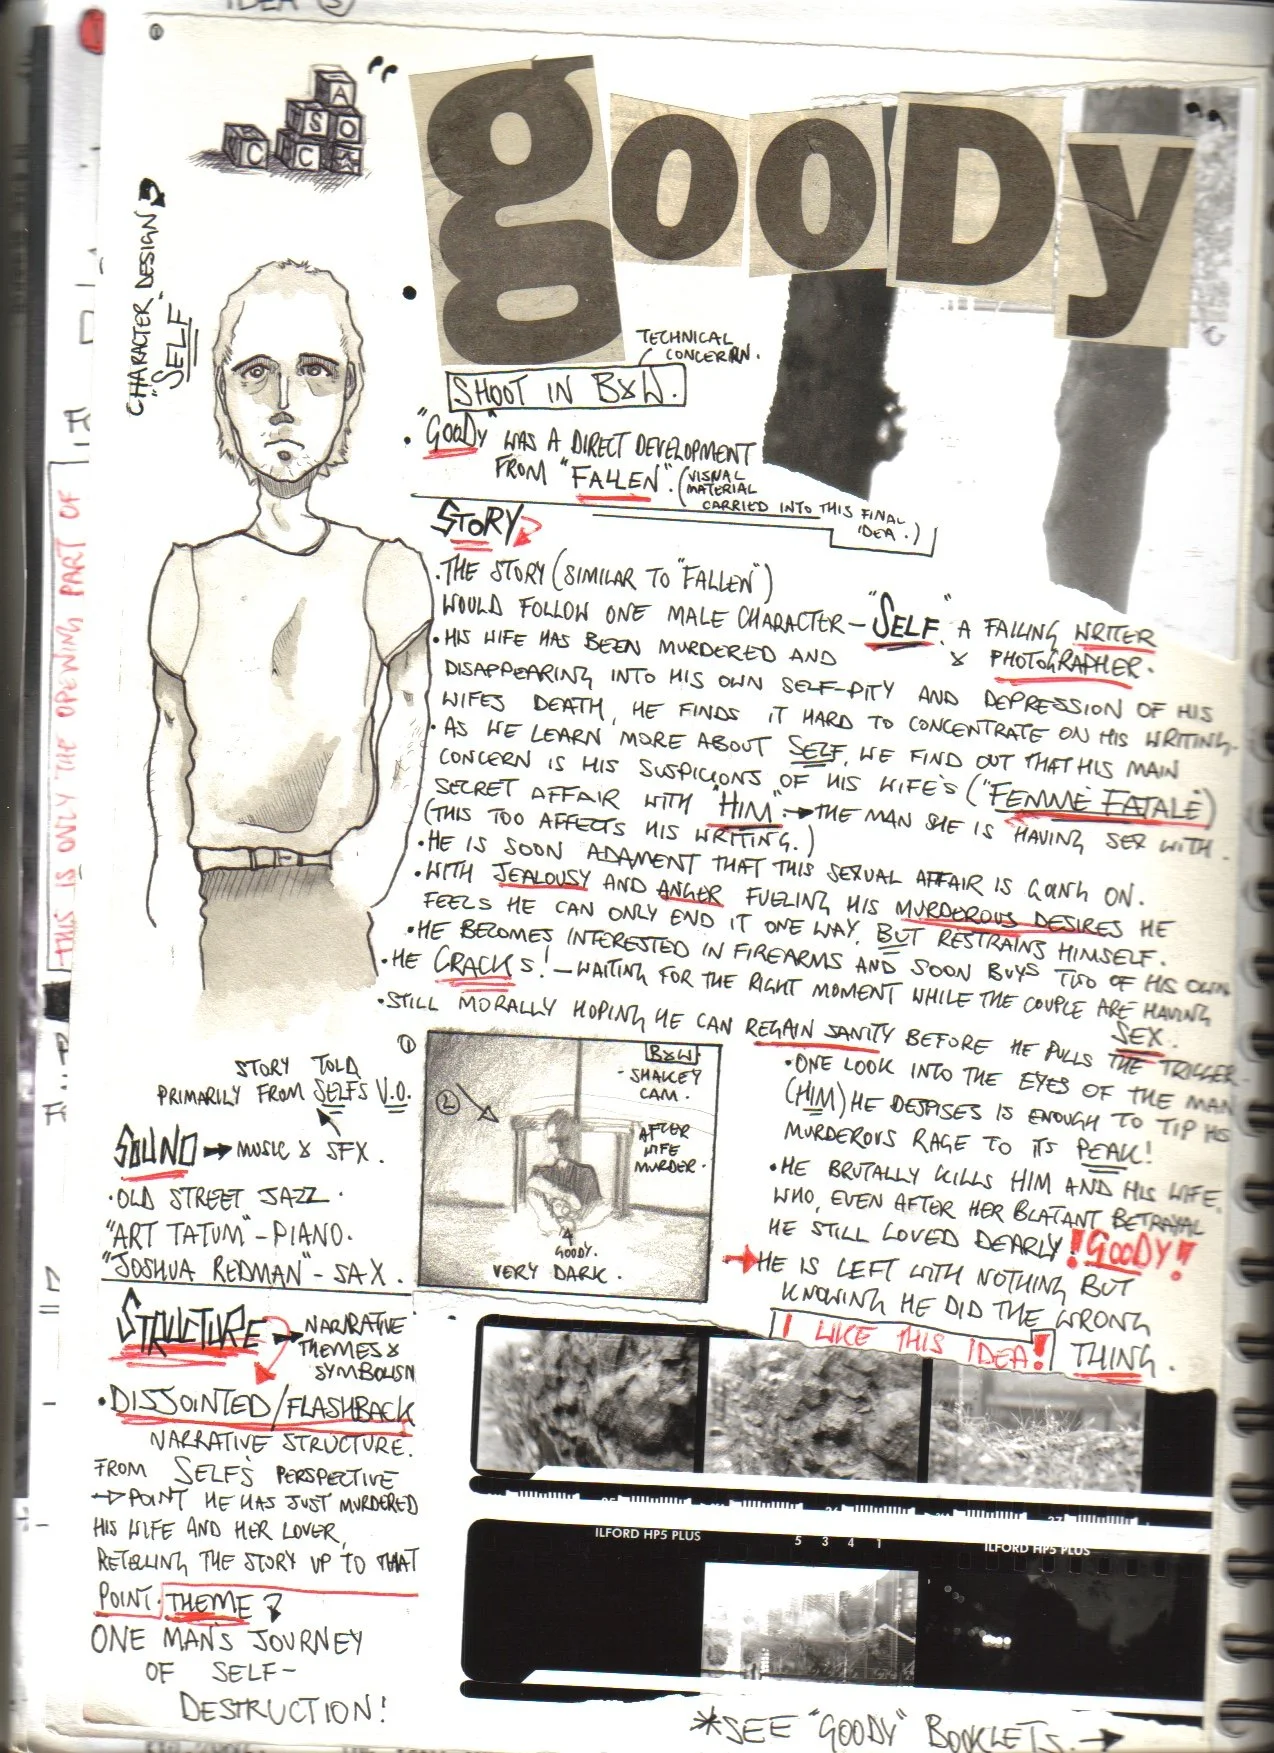 IDEA 3
"gooDy"
A
S O
C C
CHARACTER DESIGN
"SELF"
TECHNICAL
CONCERRN.
SHOOT IN B&W.
• "GooDy" WAS A DIRECT DEVELOPMENT
FROM "FALLEN". (VISUAL
MATERIAL
CARRIED INTO THIS FINAL
IDEA.)
STORY
• THE STORY (SIMILAR TO "FALLEN")
WOULD FOLLOW ONE MALE CHARACTER – "SELF". A FAILING WRITER
& PHOTOGRAPHER.
• HIS WIFE HAS BEEN MURDERED AND
DISAPPEARING INTO HIS OWN SELF-PITY AND DEPRESSION OF HIS
WIFES DEATH, HE FINDS IT HARD TO CONCENTRATE ON HIS WRITING.
• AS WE LEARN MORE ABOUT SELF, WE FIND OUT THAT HIS MAIN
CONCERN IS HIS SUSPICIONS OF HIS WIFE'S ("FEMME FATALE")
SECRET AFFAIR WITH "HIM" → THE MAN SHE IS HAVING SEX WITH.
(THIS TOO AFFECTS HIS WRITING.)
• HE IS SOON ADAMENT THAT THIS SEXUAL AFFAIR IS GOING ON.
• WITH JEALOUSY AND ANGER FUELING HIS MURDEROUS DESIRES HE
FEELS HE CAN ONLY END IT ONE WAY, BUT RESTRAINS HIMSELF.
• HE BECOMES INTERESTED IN FIREARMS AND SOON BUYS TWO OF HIS OWN
• HE CRACKS! – WAITING FOR THE RIGHT MOMENT WHILE THE COUPLE ARE HAVING
SEX.
• STILL MORALLY HOPING HE CAN REGAIN SANITY BEFORE HE PULLS THE TRIGGER.
• ONE LOOK INTO THE EYES OF THE MAN
(HIM) HE DESPISES IS ENOUGH TO TIP HIS
MURDEROUS RAGE TO ITS PEAK!
• HE BRUTALLY KILLS HIM AND HIS WIFE,
WHO, EVEN AFTER HER BLATANT BETRAYAL
HE STILL LOVED DEARLY! GooDy!
→ HE IS LEFT WITH NOTHING BUT
KNOWING HE DID THE WRONG
THING.
I LIKE THIS IDEA!
THIS IS ONLY THE OPENING PART OF
1
B&W
- SHAKEY
CAM.
2
AFTER
WIFE
MURDER.
GOODY.
VERY DARK.
STORY TOLD
PRIMARILY FROM SELFS V.O.
SOUND → MUSIC & SFX.
• OLD STREET JAZZ.
"ART TATUM" – PIANO.
"JOSHUA REDMAN" – SAX.
STRUCTURE → NARRATIVE
THEMES &
SYMBOLISM
• DISJOINTED/FLASHBACK
NARRATIVE STRUCTURE.
FROM SELF'S PERSPECTIVE
→ POINT HE HAS JUST MURDERED
HIS WIFE AND HER LOVER,
RETELLING THE STORY UP TO THAT
POINT. THEME
ONE MAN'S JOURNEY
OF SELF-
DESTRUCTION!
ILFORD HP5 PLUS 5 3 4 1 ILFORD HP5 PLUS
*SEE "GOODY" BOOKLETS. →